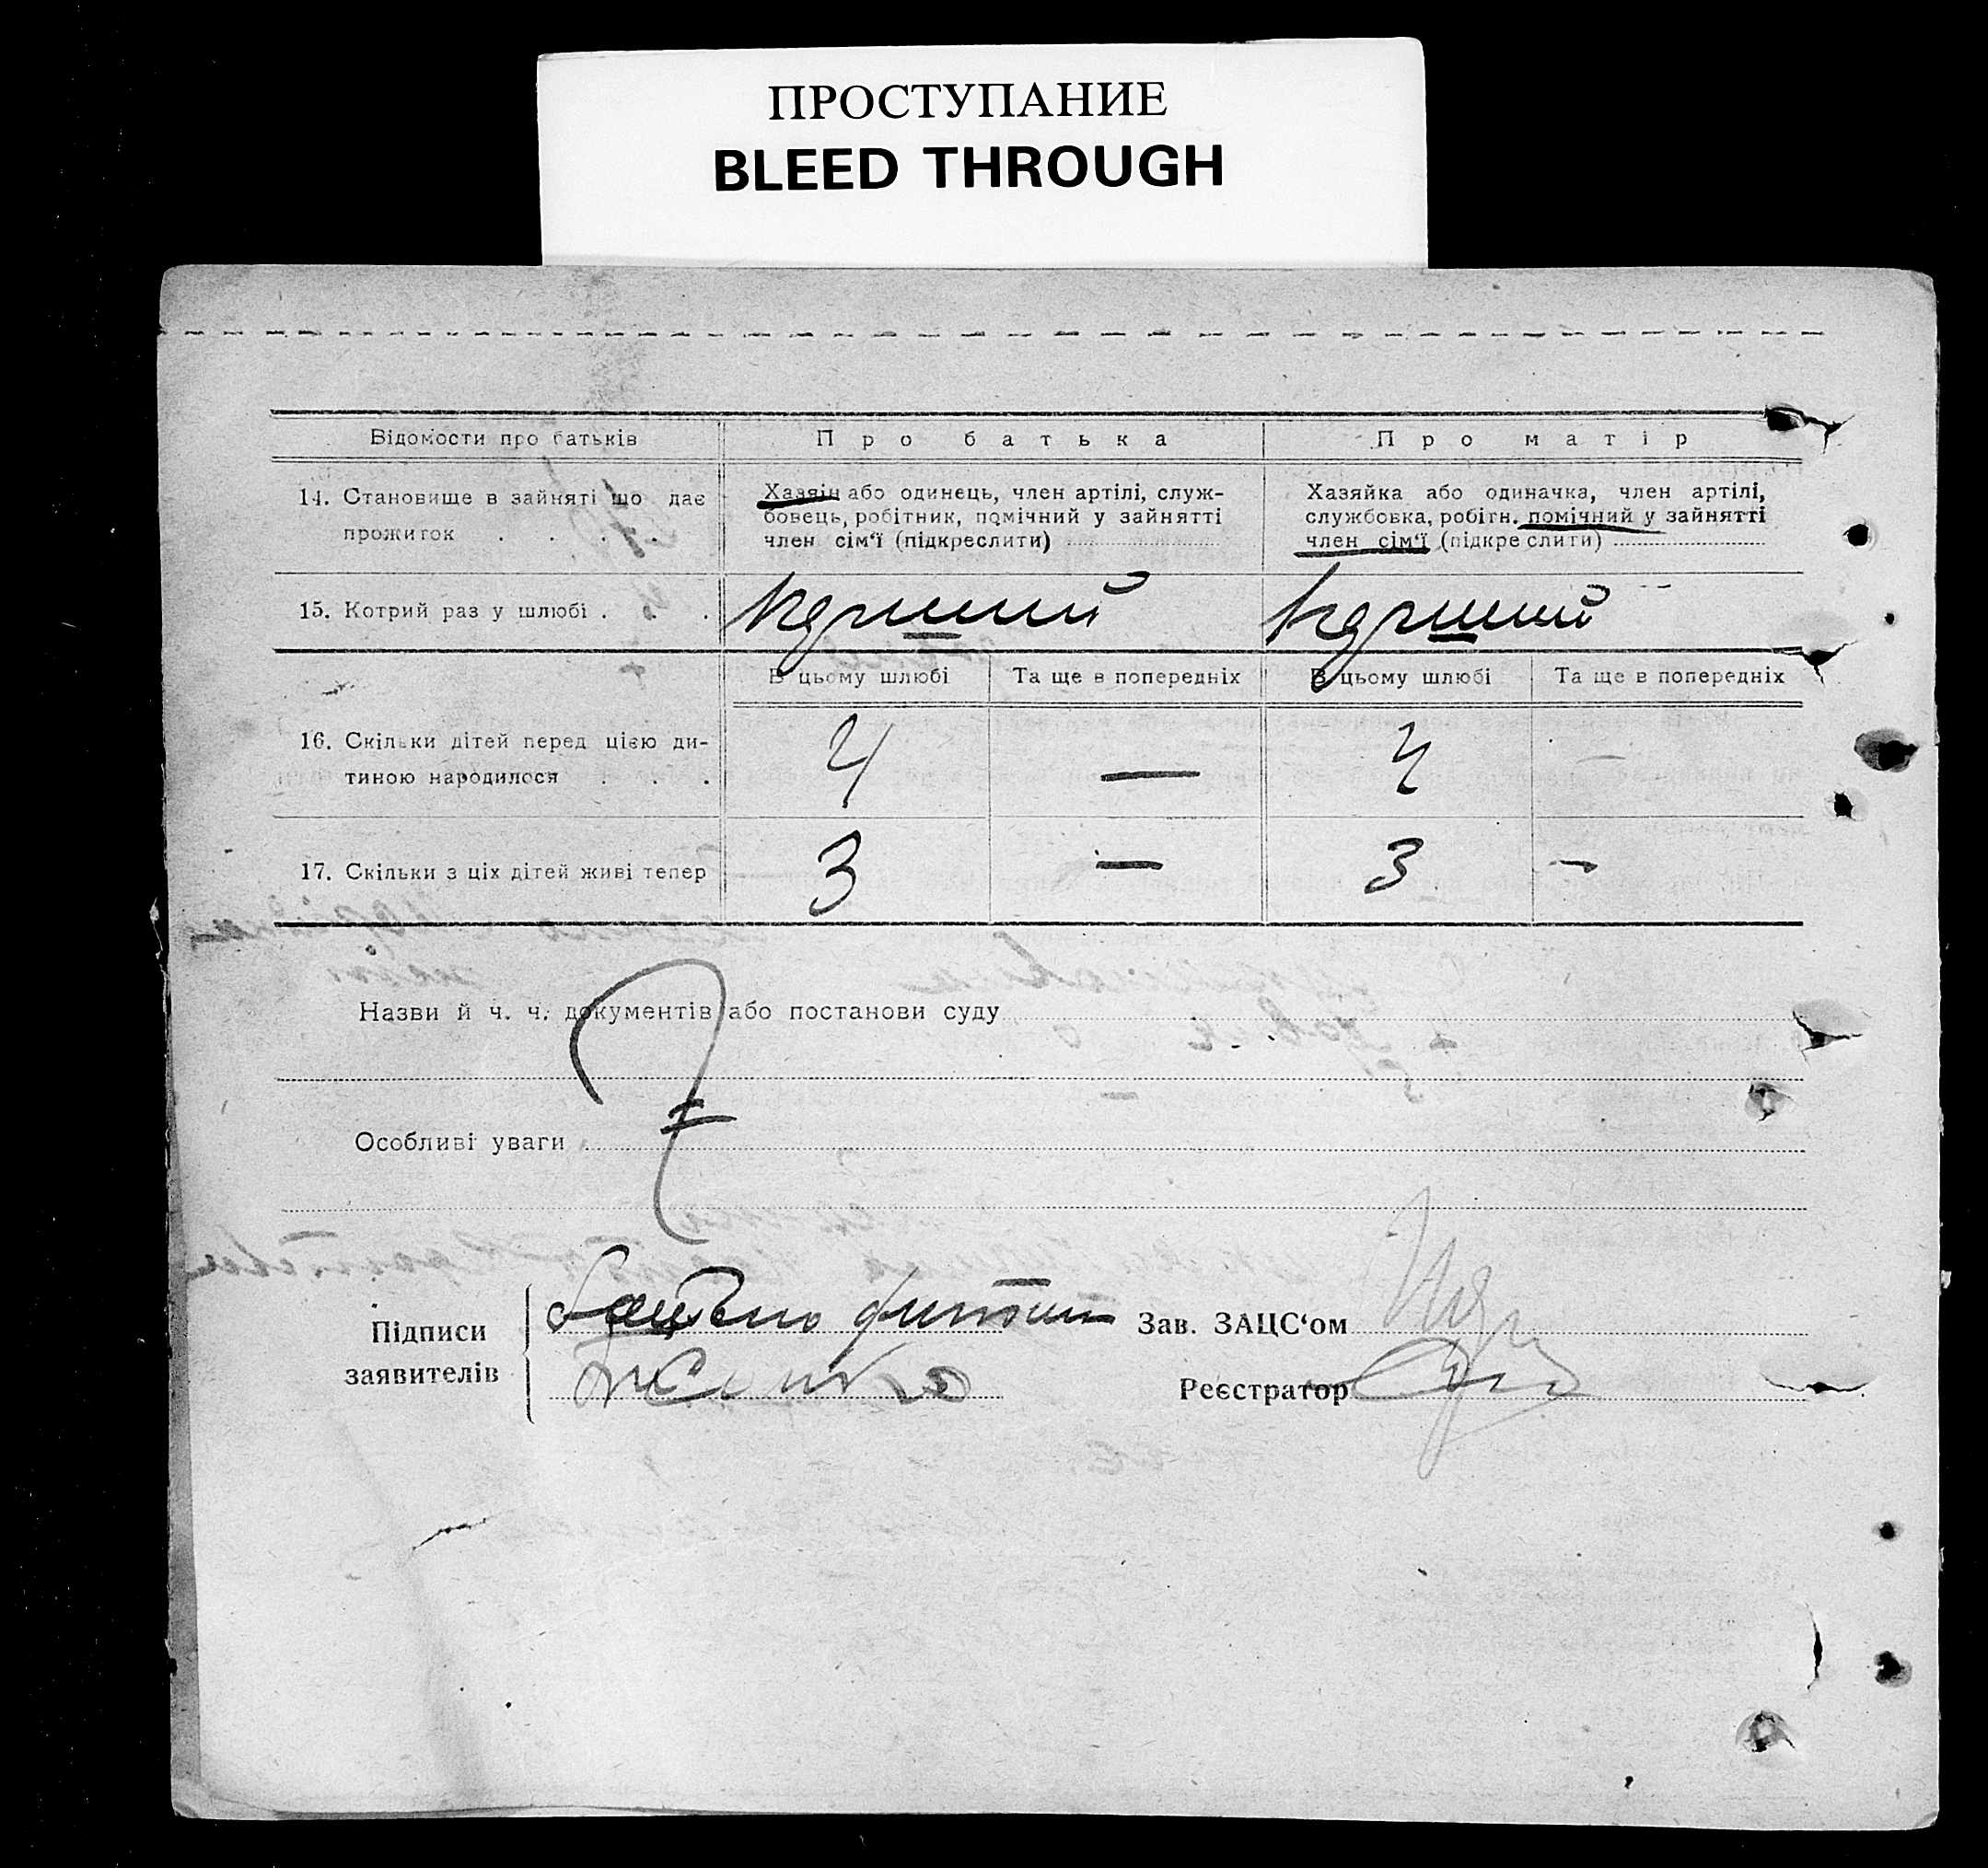 ПРОСТУПАНИЕ
BLEED THROUGH
Відомости про батьків
Про батька
Про матір
14. Становище в зайняті що дає
прожиток . . . .
Хазяїн або одинець, член артілі, служ-
бовець, робітник, помічний у зайнятті
член сім'ї (підкреслити)
Хазяйка або одиначка, член артілі,
службовка, робітн. помічний у зайнятті
член сім'ї (підкреслити)
15. Котрий раз у шлюбі . . .
В цьому шлюбі
Та ще в попередніх
В цьому шлюбі
Та ще в попередніх
16. Скільки дітей перед цією ди-
тиною народилося . . .
4 — 4 —
17. Скільки з ціх дітей живі тепер
3 — 3 —
Назви й ч. ч. документів або постанови суду
Особливі уваги
Підписи
заявителів
Зав. ЗАЦС'ом
Реєстратор